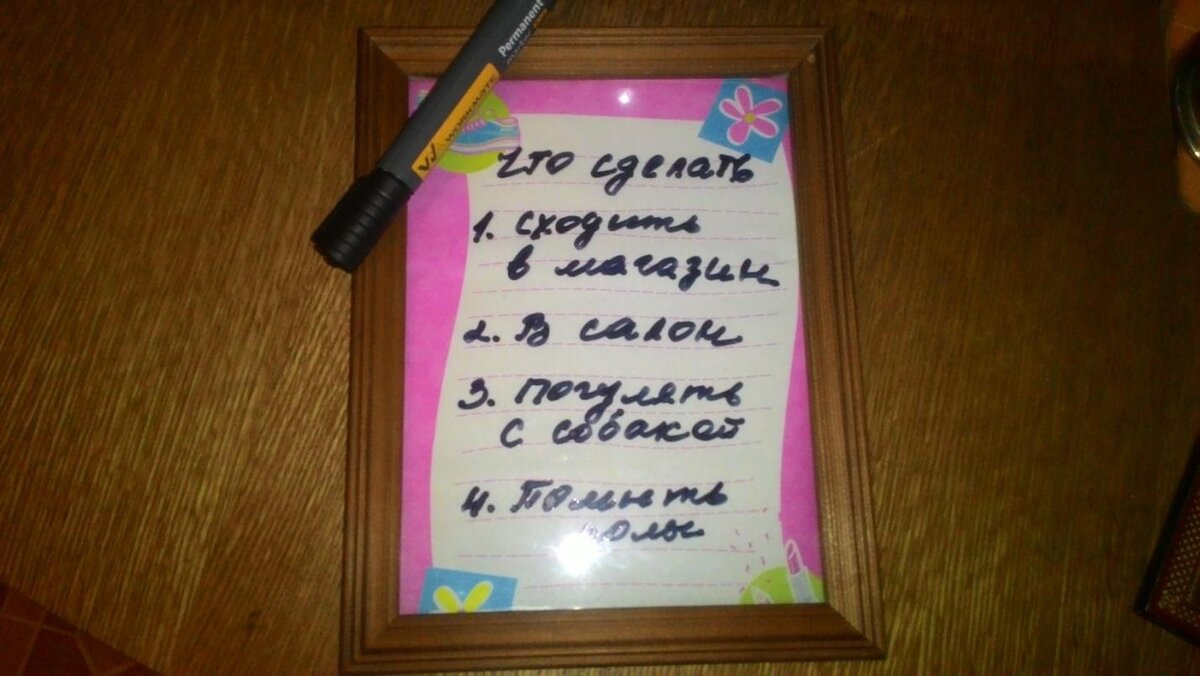 Permanent
marker
WORKMATE
Что сделать
1. Сходить
в магазин
2. В салон
3. Погулять
с собакой
4. Помыть
полы